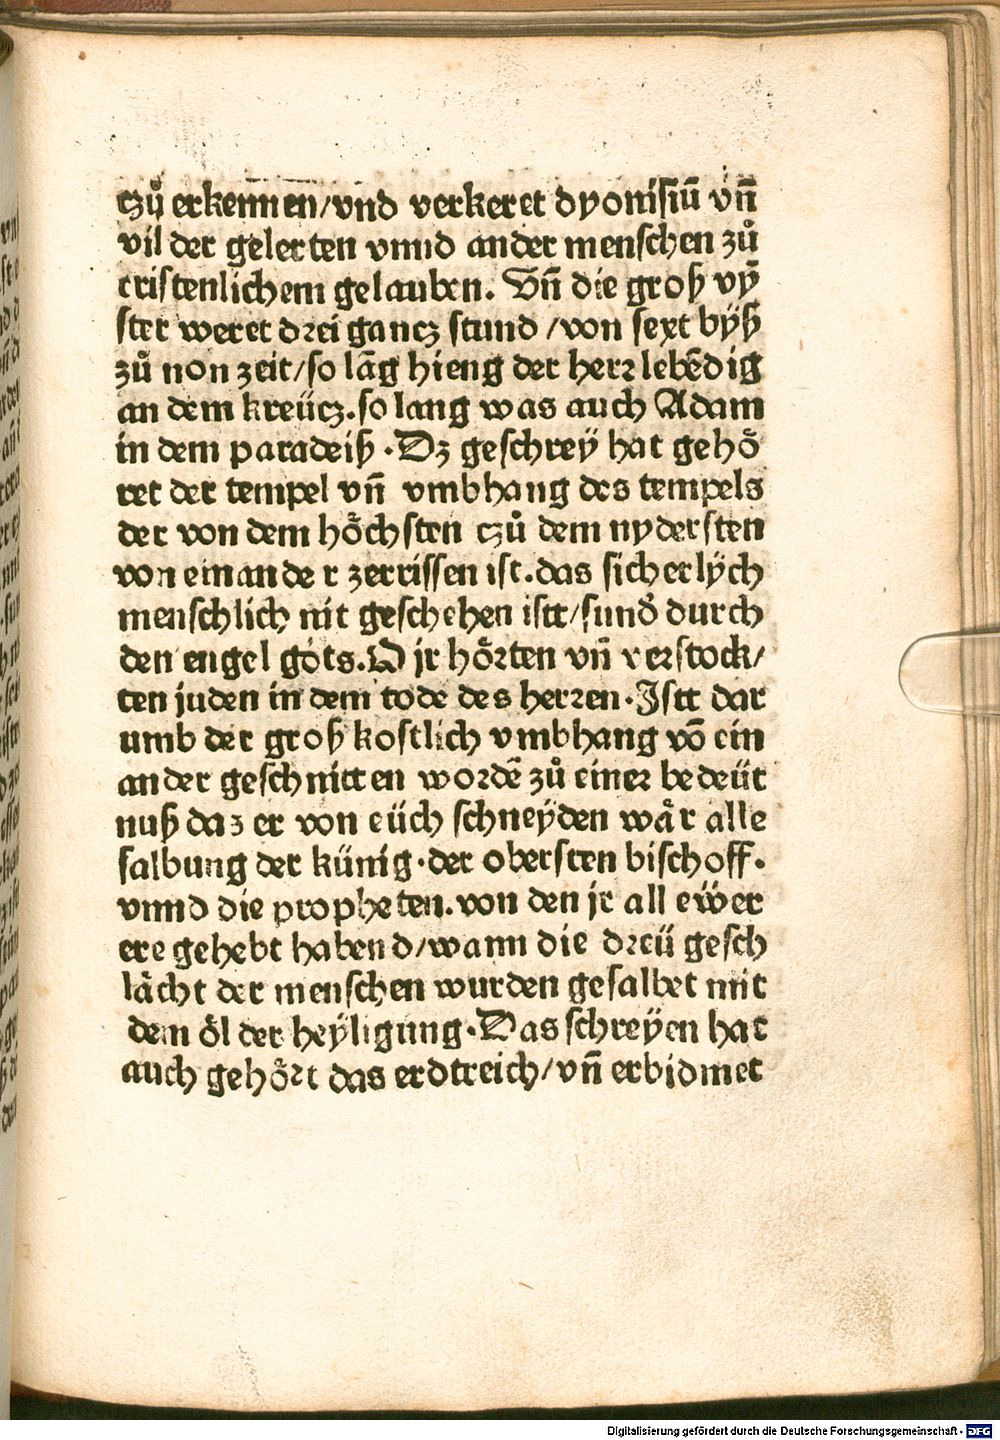 czuͦ erkennen/vnd verkeret dyonisiū vñ
vil der gelerten vnnd ander menschen zuͦ
cristenlichem gelauben. Vñ die groß vÿ
ster weret drei gancz stund /von sext bÿß
zuͦ non zeit/so lāg hieng der herr lebēdig
an dem kreücz.so lang was auch Adam
in dem paradeiß.Dz geschreÿ hat gehoͤ
ret der tempel vñ vmbhang des tempels
der von dem hoͤchsten czuͦ dem nydersten
von einander zerrissen ist.das sicherlÿch
menschlich nit geschehen istt/sund durch
den engel gots.O jr hoͤrten vñ verstock/
ten juden in dem tode des herren.Istt dar
umb der groß kostlich vmbhang vō ein
ander geschnitten wordē zuͦ einer bedeüt
nuß daz er von eüch schneÿden waͤr alle
salbung der künig.der obersten bischoff.
vnnd die propheten.von den jr all eẅer
ere gehebt habend/wann die dreü gesch
laͤcht der menschen wurden gesalbet mit
dem oͤl der heÿligung.Das schreÿen hat
auch gehoͤrt das erdtreich/vñ erbidmet
Digitalisierung gefördert durch die Deutsche Forschungsgemeinschaft - DFG